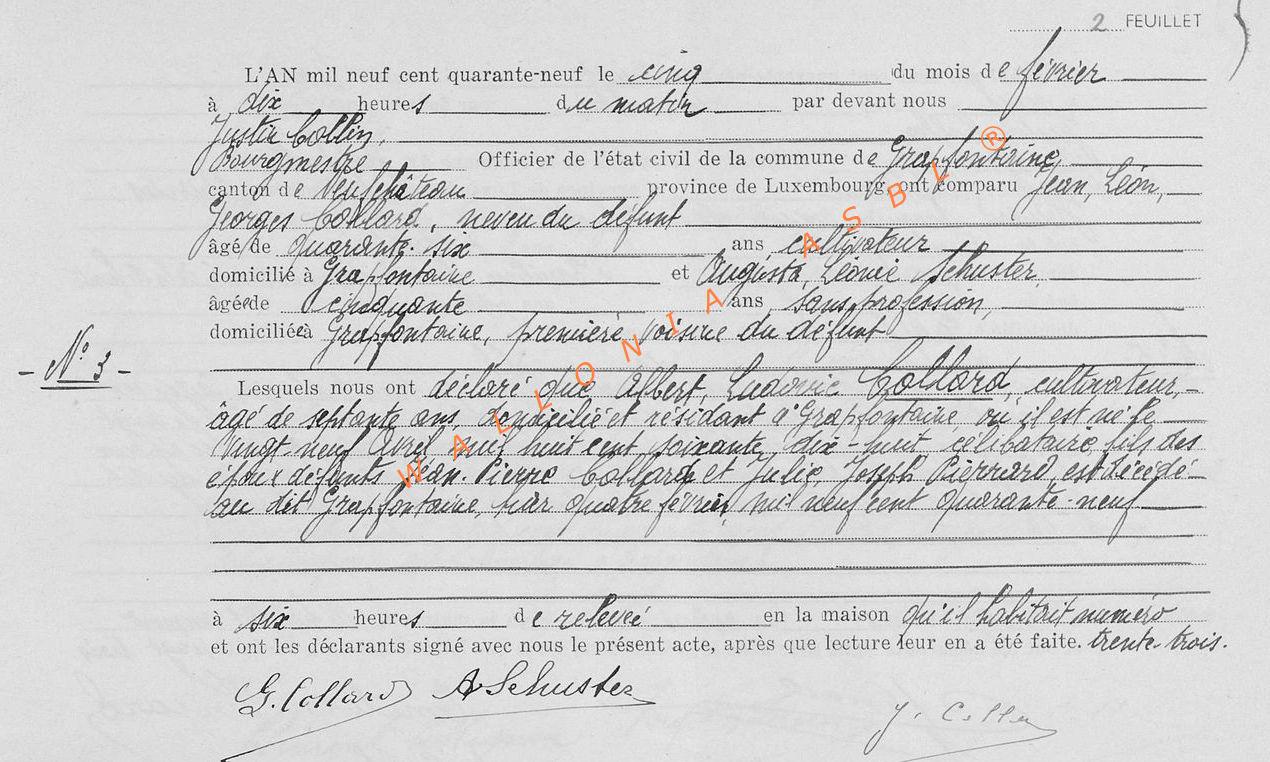 2 FEUILLET
L'AN mil neuf cent quarante-neuf le cinq du mois de février
à dix heures du matin par devant nous
Justin Collin,
Bourgmestre Officier de l'état civil de la commune de Grapfontaine
canton de Neufchâteau province de Luxembourg, ont comparu Jean, Léon,
Georges Collard, neveu du défunt
âgé de quarante-six ans cultivateur
domicilié à Grapfontaine et Augusta, Léonie Schuster,
âgée de cinquante ans sans profession,
domiciliée à Grapfontaine, première voisine du défunt
N° 3
Lesquels nous ont déclaré que Albert, Ludovic Collard, cultivateur,
âgé de septante ans, domicilié et résidant à Grapfontaine, où il est né le
vingt-neuf Avril mil huit cent soixante dix-huit célibataire, fils des
époux défunts Jean-Pierre Collard et Julie, Joseph Pierrard, est décédé
au dit Grapfontaine, hier quatre février, mil neuf cent quarante-neuf
à six heures de relevée en la maison qu'il habitait numéro
et ont les déclarants signé avec nous le présent acte, après que lecture leur en a été faite. trente-trois.
G. Collard A Schuster J. Collin
WALLONIA ASBL ®